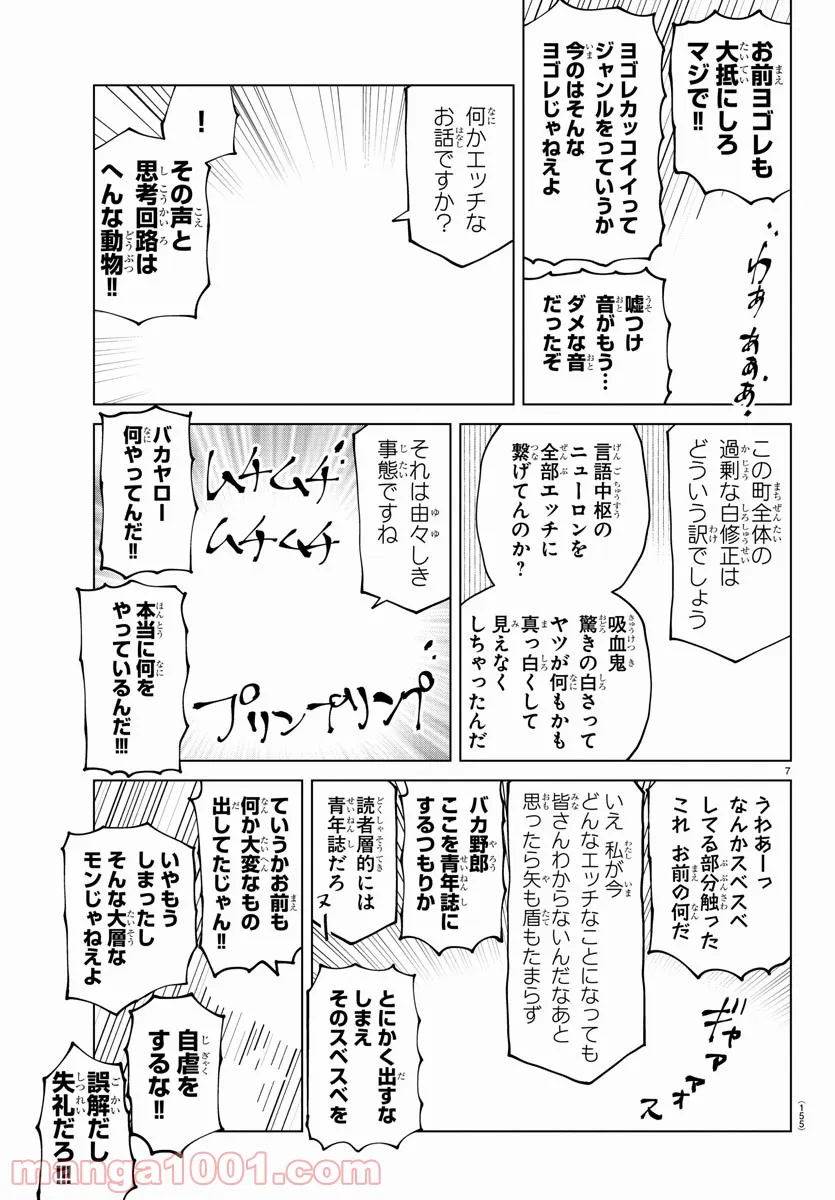 お前ヨゴレも
大抵にしろ
マジで!!
ヨゴレカッコイイって
ジャンルをっていうか
今のはそんな
ヨゴレじゃねえよ
わぁ ああぁ
嘘つけ
音がもう…
ダメな音
だったぞ
何かエッチな
お話ですか?
!
その声と
思考回路は
へんな動物!!
この町全体の
過剰な白修正は
どういう訳でしょう
言語中枢の
ニューロンを
全部エッチに
繋げてんのか?
吸血鬼
驚きの白さって
ヤツが何もかも
真っ白くして
見えなく
しちゃったんだ
それは由々しき
事態ですね
ムチムチ
ムチムチ
プリンプリンプ
バカヤロー
何やってんだ!!
本当に何を
やっているんだ!!!
7
うわあーっ
なんかスベスベ
してる部分触った
これ お前の何だ
ギャアアァオス
いえ 私が今
どんなエッチなことになっても
皆さんわからないんだなあと
思ったら矢も盾もたまらず
バカ野郎
ここを青年誌に
するつもりか
読者層的には
青年誌だろ
ヌー
とにかく出すな
しまえ
そのスベスベを
ていうかお前も
何か大変なもの
出してたじゃん!!
いやもう
しまったし
そんな大層な
モンじゃねえよ
自虐を
するな!!
誤解だし
失礼だろ!!!
(155)
manga1001.com